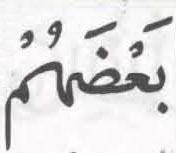 بَعْضَهُمْ